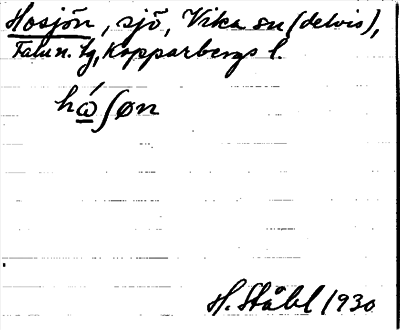 Hosjön, sjö, Vika sn (delvis),
Falun. tg, Kopparbergs l.
hǻʃøn
H. Ståhl 1930